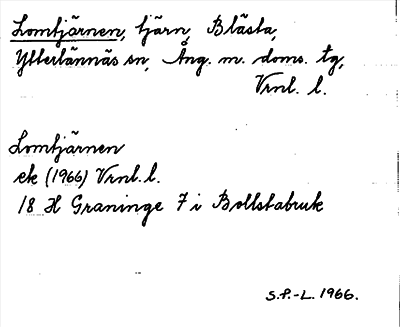 Lomtjärnen, tjärn, Blästa,
Ytterlännäs sn, Ång. m. doms. tg,
Vrnl. l.
Lomtjärnen
ek (1966) Vrnl. l.
18 H Graninge 7 i Bollstabruk
S.P.-L. 1966.